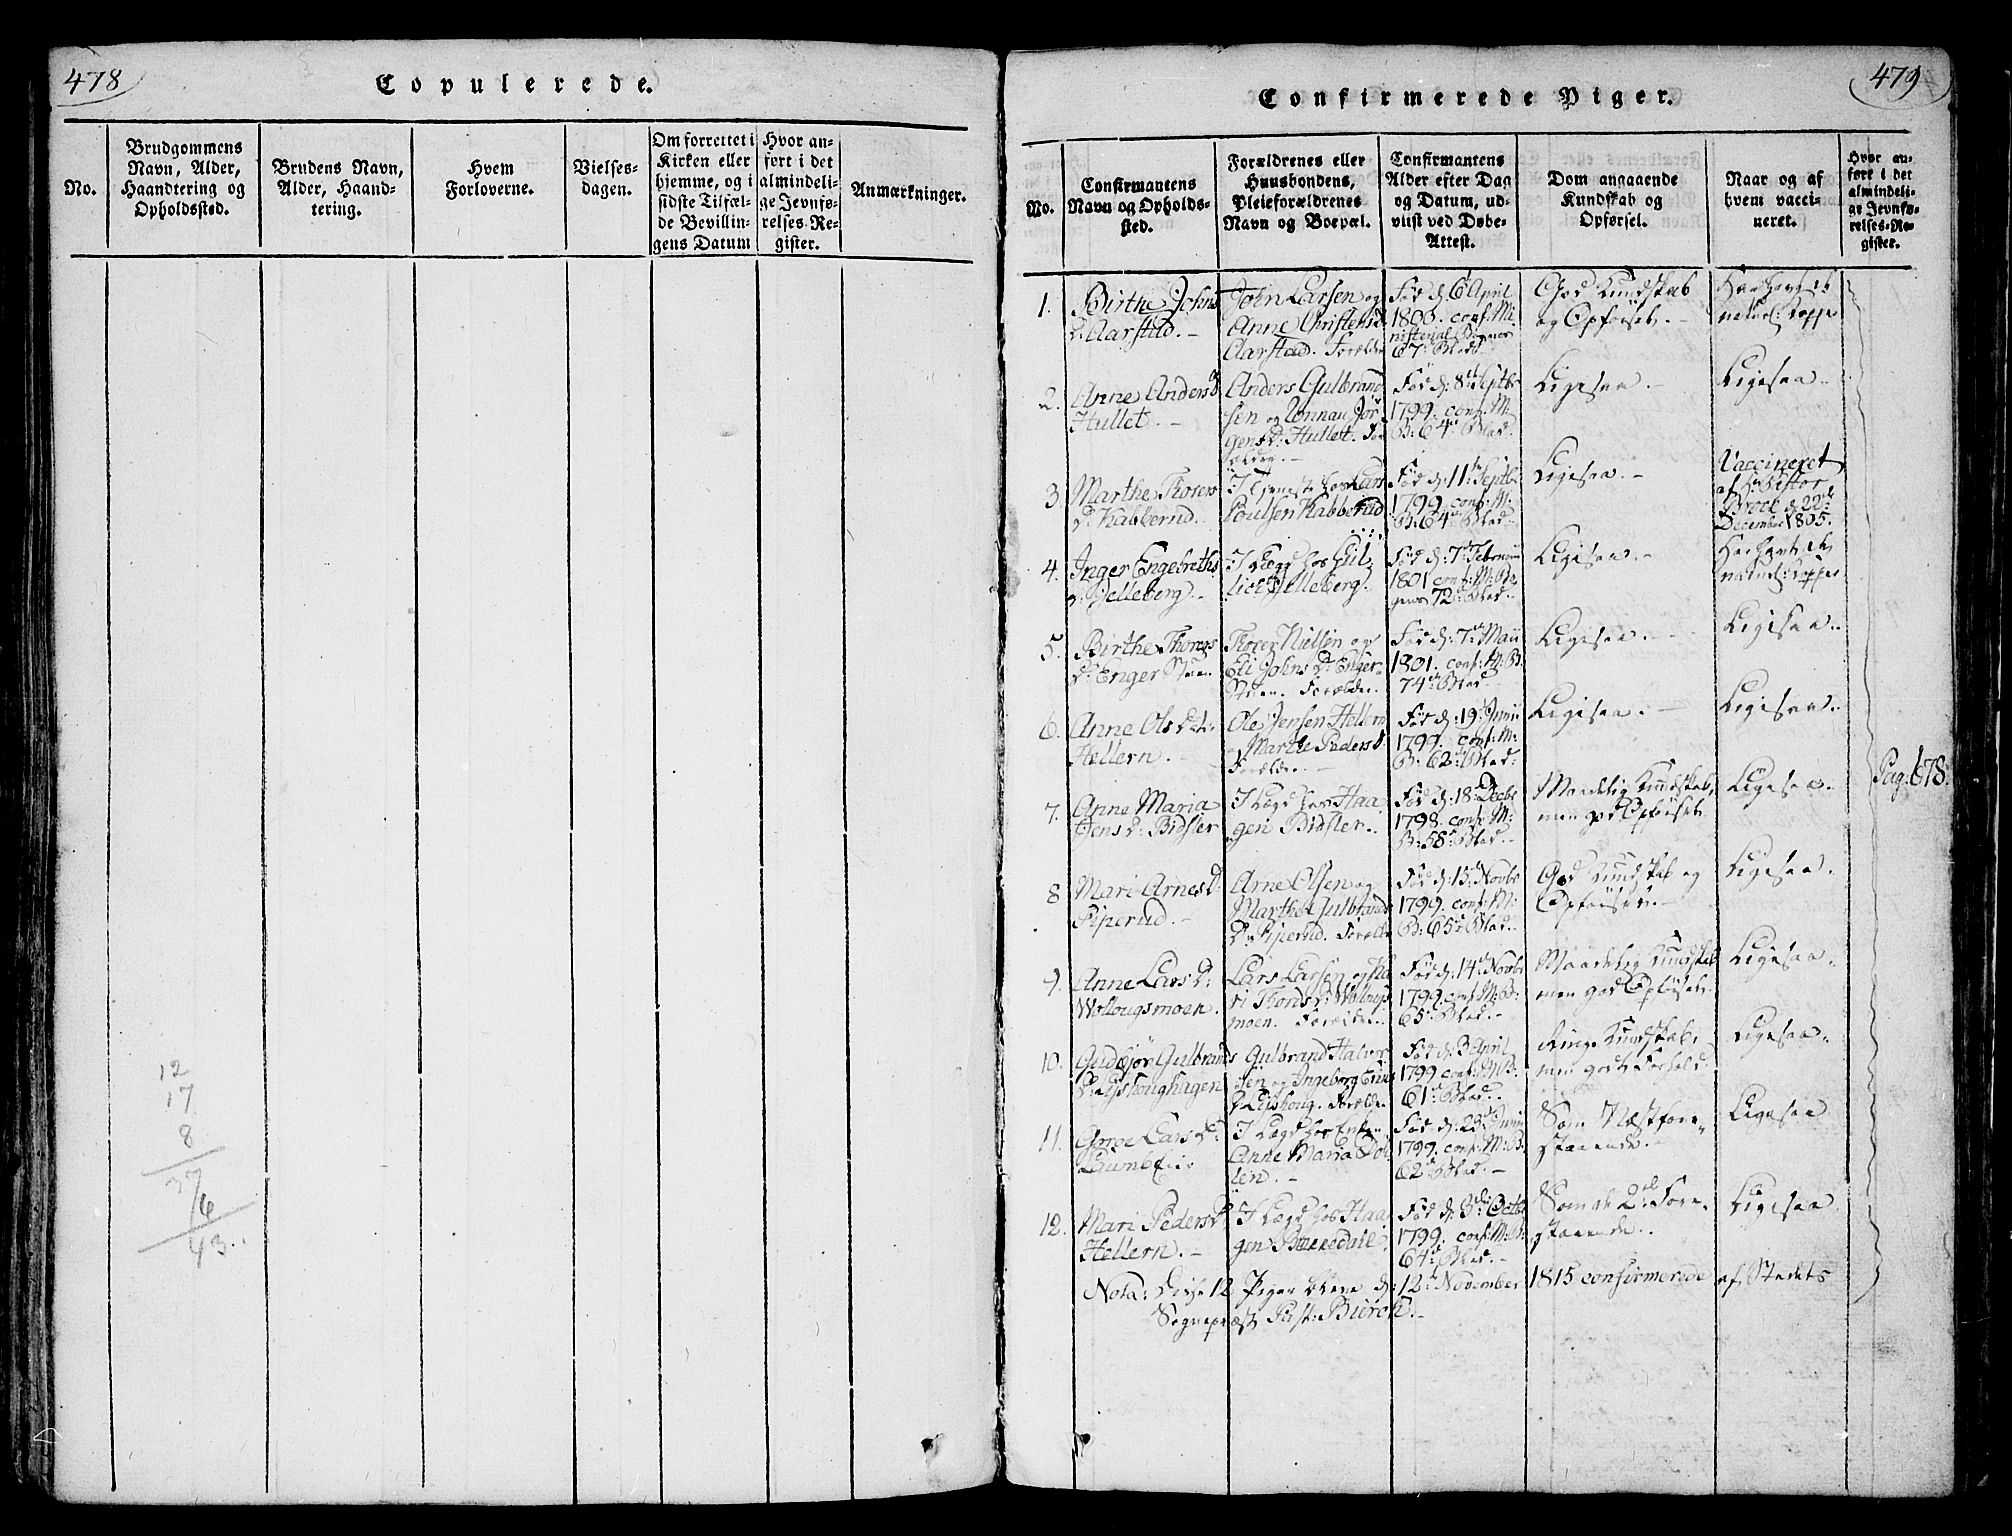 478
Copulerede.
No.
Brudgommens
Navn, Alder,
Haandtering og
Opholdssted.
Brudens Navn,
Alder, Haand-
tering.
Hvem
Forloverne.
Vielses-
dagen.
Om forrettet i
Kirken eller
hjemme, og i
sidste Tilfæl-
de Bevillin-
gens Datum
Hvor an-
ført i det
almindeli-
ge Jevnfø-
relses-Re-
gister.
Anmærkninger.
12
17
8
37
6
43
479
Confirmerede Piger.
No.
Confirmantens
Navn og Opholds-
sted.
Forældrenes eller
Huusbondens,
Pleieforældrenes
Navn og Boepæl.
Confirmantens
Alder efter Dag
og Datum, ud-
viist ved Døbe-
Attest.
Dom angaaende
Kundskab og
Opførsel.
Naar og af
hvem vacci-
neret.
Hvor an-
ført i det
almindeli-
ge Jevnfø-
relses-Re-
gister.
1.
Birthe Johns
D: Aarstad.
John Larsen og
Anne Christensd
Aarstad. Forældre
Fød d. 6 April
1800. conf. Mi-
nisterial Bogens
67de Blad
God Kundskab
og Opførsel.
Har havt de
naturl: Kopper
2.
Anne Andersd
Hullet.
Anders Gulbrand
sen og Jør
gensd: Hullet. For
ældre.
Fød d: 8de Septbr
1799. conf. M:
B: 64de Blad.
Ligesaa.
Ligesaa.
3.
Marthe Thorers
D: Kabberud.
I Tjeneste hos Lars
Poulsen Kabberud
Fød d: 11te Septbr
1799. conf. M:
B: 64de Blad.
Ligesaa.
Vaccineret
af
Brock d. 22de
December 1805.
4.
Inger Engebreths
D: Helleberg.
I Lægd hos Gul
lich Helleberg.
Fød d: 7de Februarii
1801 conf: M: Bo
gens 72de Blad.
Ligesaa.
Har havt de
naturl: Kopper
5.
Birthe Thorers
D: Enger Stuen
Thorer Nielsen og
Eli Johns D: Enger-
Stuen. Forældre.
Fød d: 7de Maii
1801. conf: M: B:
74de Blad
Ligesaa.
Ligesaa.
6.
Anne Olsdtr
Hellern.
Ole Jensen Hellern
Marthe Pedersd:
Forældre.
Fød d: 19de Junii
1799. conf: M:
B: 62de Blad:
Ligesaa.
Ligesaa.
Pag: 678.
7.
Anne Maria
Jens D: Bidsler
I Lægd hos Haa
gen Bidsler.
Fød d: 18: Decbr
1798. conf: M:
B: 58de Blad.
Maadelig Kundskab,
men god Opførsel.
Ligesaa.
8
Mari Arnes D:
Piperud.
Arne Olsen og
Marthe Gulbrands
D: Piperud. Forældre
Fød d: 15de Novbr
1799. conf: M:
B: 65de Blad.
God Kundskab og
Opførsel.
Ligesaa.
9.
Anne Lars D:
Wollougsmoen.
Lars Larsen og
Thords D: Wollougs
moen. Forældre.
Fød d: 14de Novbr
1799. conf: M: B:
65de Blad.
Maadelig Kundskab
men god Opførsel.
Ligesaa.
10.
Gudbjør Gulbrands
D:
Gulbrand Halvor
sen og Ingeborg
D: Forældre
Fød d. 3 April
1799 conf: M: B:
61de Blad.
Ringe Kundskab,
men godt Forhold.
Ligesaa.
11.
Lars D:
I Lægd hos Enken
Anne Maria Dol
len.
Fød d. 23de Junii
1799. conf: M: B:
62de Blad.
Som Næstfore-
staaende.
Ligesaa
12.
Mari Peders D:
Hellern.
I Lægd hos Haa
gen
Fød d. 3die Octbr
1799. conf: M: B:
64de Blad.
Som de 2de Fore-
staaende.
Ligesaa.
Nota: Disse 12 Piger bleve d: 12te November 1815 confirmerede af Stedets
Sognepræst Past: